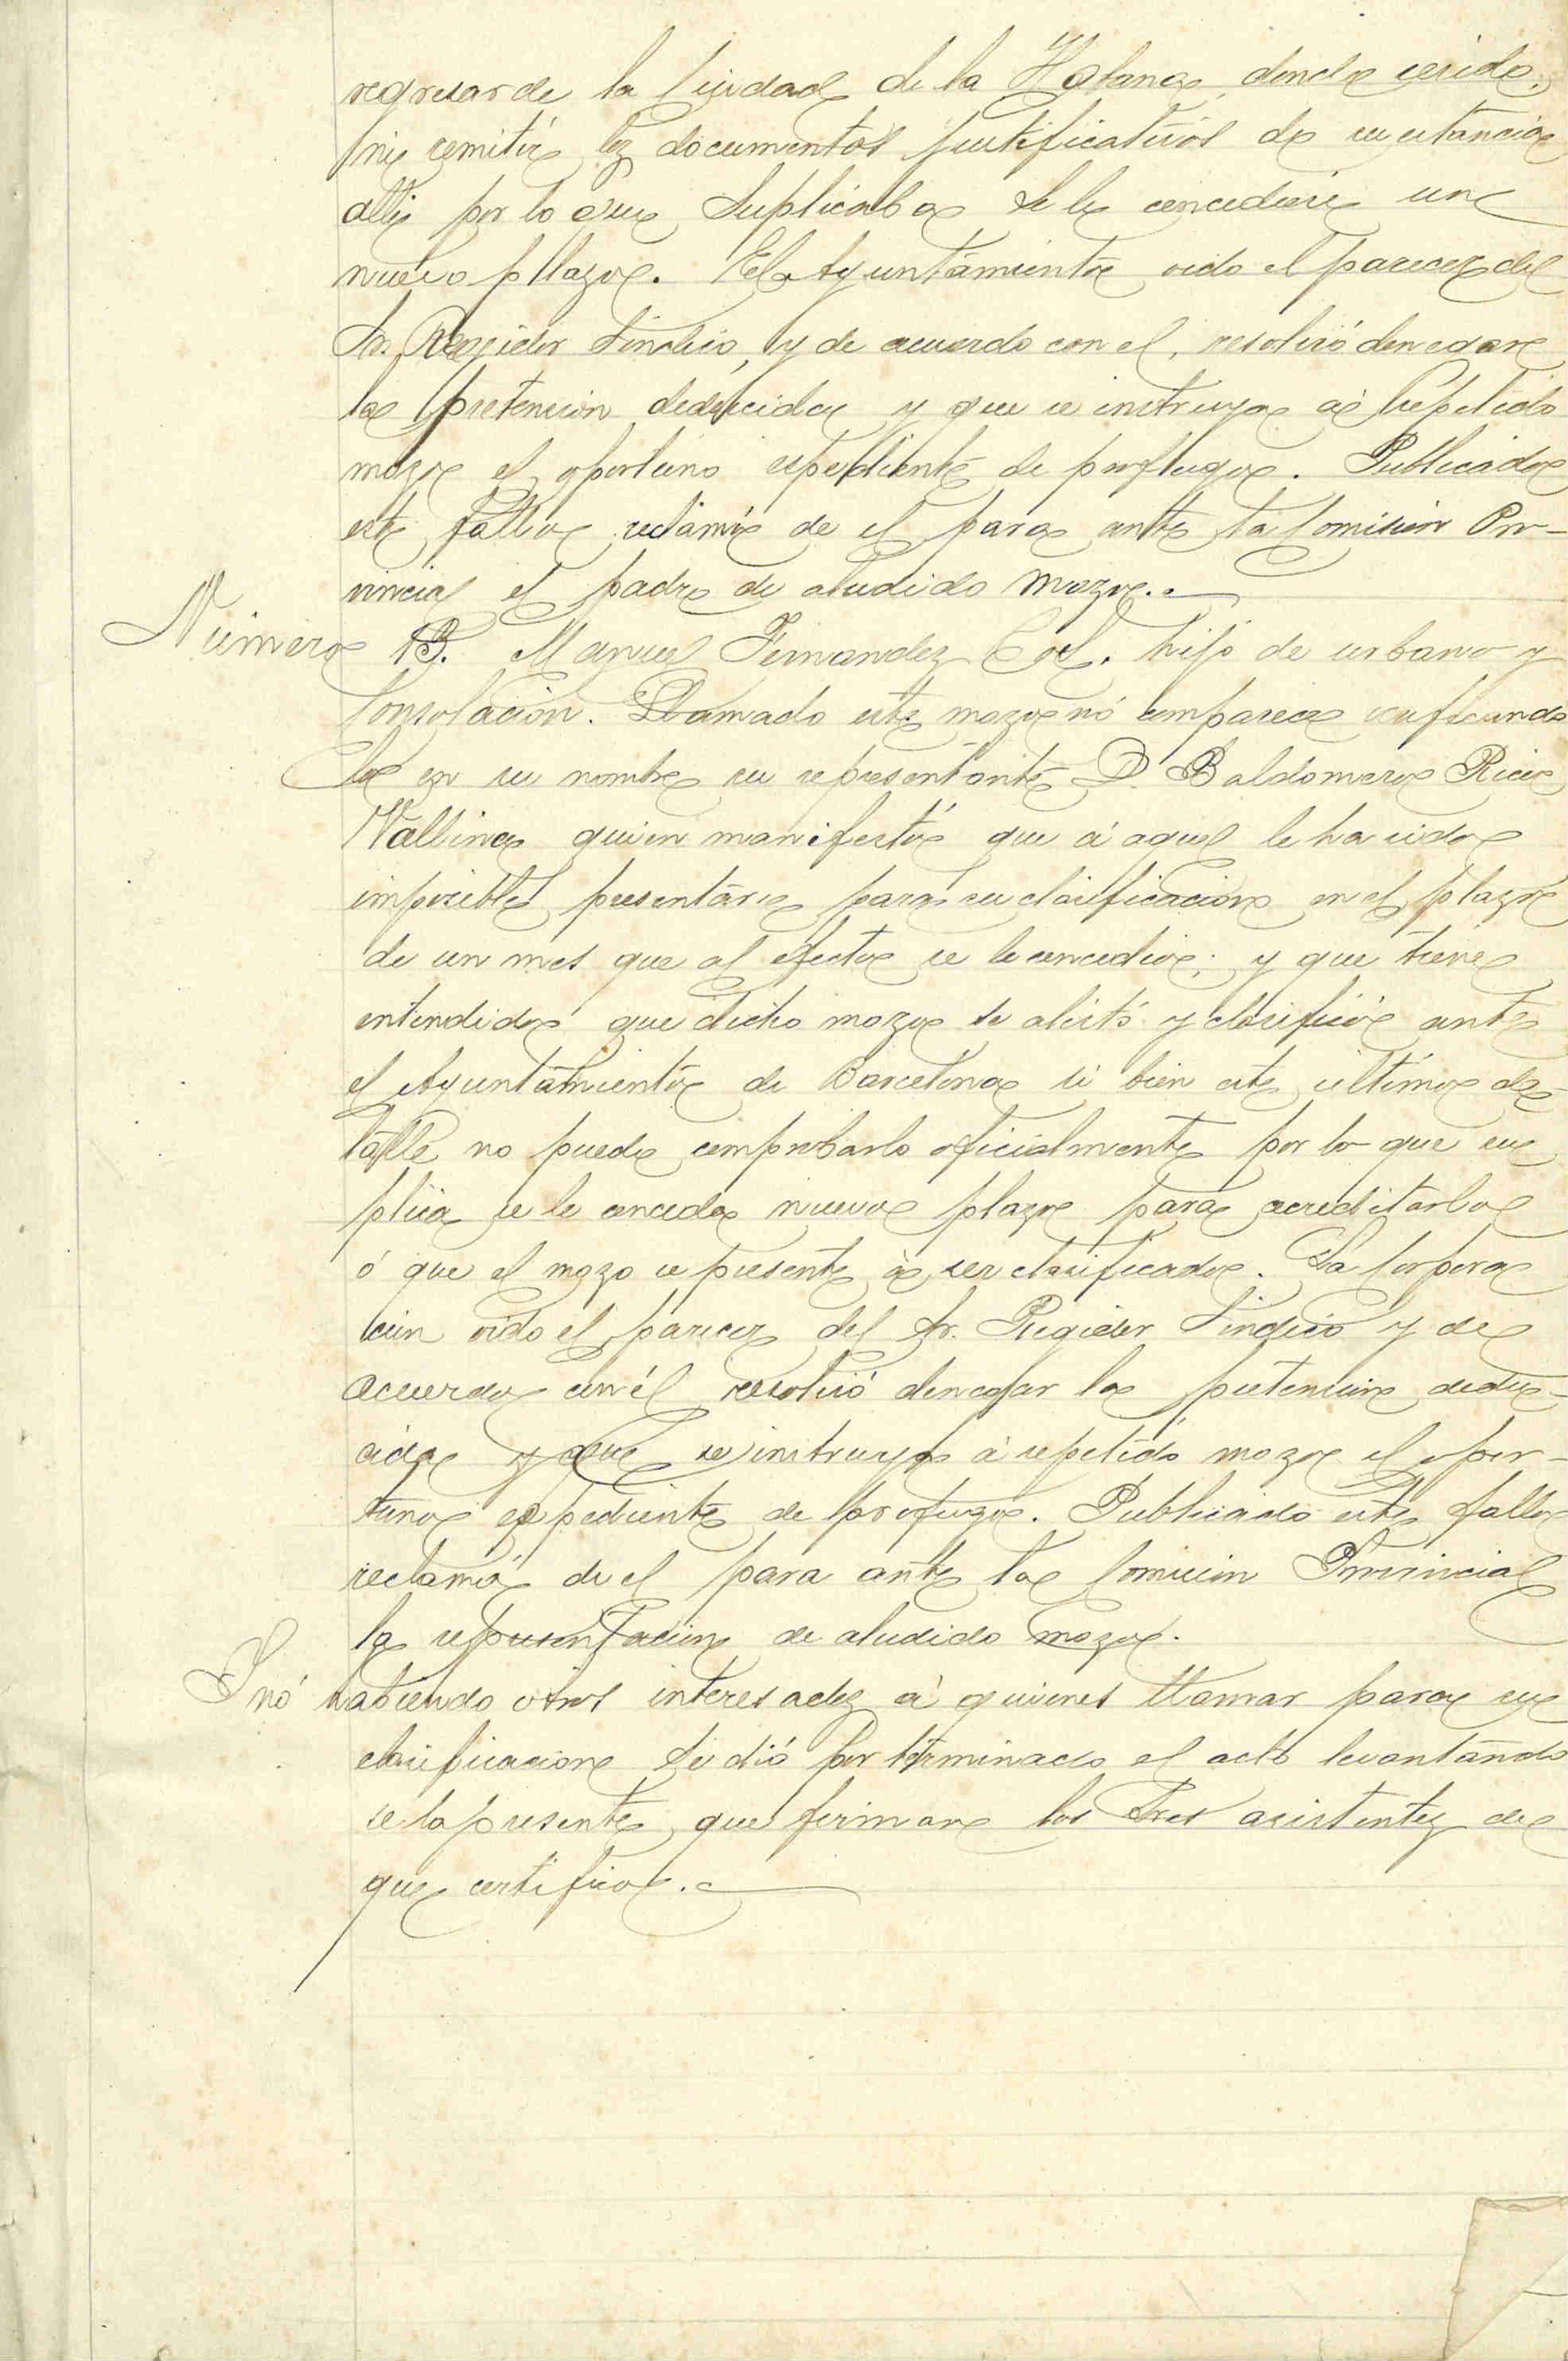 regresar de la Ciudad de la Habana, donde reside,
ni remitir los documentos justificativos de su estancia
alli por lo que Suplicaba se le concediese un
nuevo plazo. El Ayuntamiento oido el parecer del
Sr. Regidor Sindico, y de acuerdo con el, resolvió denegar
la pretension deducida y que se instruya á repetido
mozo el oportuno espediente de profugo. Publicado
este fallo reclamó de el para ante la Comision Pro-
vincial el padre de aludido mozo.
Número 13. Manuel Fernandez Cos. hijo de urbano y
Consolación. Llamado este mozo nó comparece verificando
lo en su nombre su representante D. Baldomero Rico
Vallina quien manifestó que á aquel le ha sido
imposible presentarse para su clasificacion en el plazo
de un mes que al efecto se le concedió; y que tiene
entendido que dicho mozo se alistó y clasificó ante
el Ayuntamiento de Barcelona si bien este último de-
talle no puede comprobarlo oficialmente por lo que su
plica se le conceda nuevo plazo para acreditarlo
ó que el mozo se presente á ser clasificado. La Corpora
cion oido el parecer del Sr. Regidor Sindico y de
acuerdo con él resolvió denegar la pretension dedu-
cida y que se instruya á repetido mozo el opor-
tuno espediente de profugo. Publicado este fallo
reclamó de el para ante la Comision Provincial
la representacion de aludido mozo.
Y nó habiendo otros interesados á quienes llamar para su
clasificacion se dió por terminado el acto levantando
se la presente que firman los Sres asistentes de
que certifico.